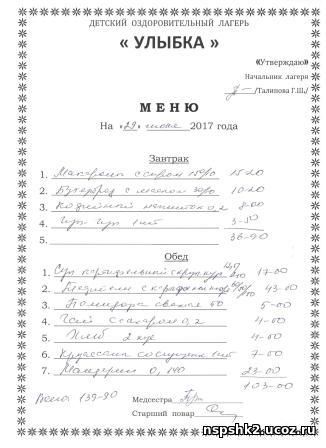 ДЕТСКИЙ ОЗДОРОВИТЕЛЬНЫЙ ЛАГЕРЬ
« УЛЫБКА »
«Утверждаю»
Начальник лагеря
/Талипова Г.Ш./
МЕНЮ
На «29» июня 2017 года
Завтрак
1. Макароны с сыром 15-20
2. Бутерброд с маслом 30/10 10-20
3. Кофейный напиток 0,2 8-00
4. 1 шт 3-50
5. 36-90
Обед
1. Суп картофельный с 17-00
2. 43-00
3. Помидора свежая 50 5-00
4. Чай с сахаром 0,2 4-00
5. Хлеб 2 кус 4-00
6. Круассаны со сгущ 1 шт 7-00
7. Мандарин 0,140 23-00
103-00
Всего 139-90
Медсестра
Старший повар
nspshk2.ucoz.ru